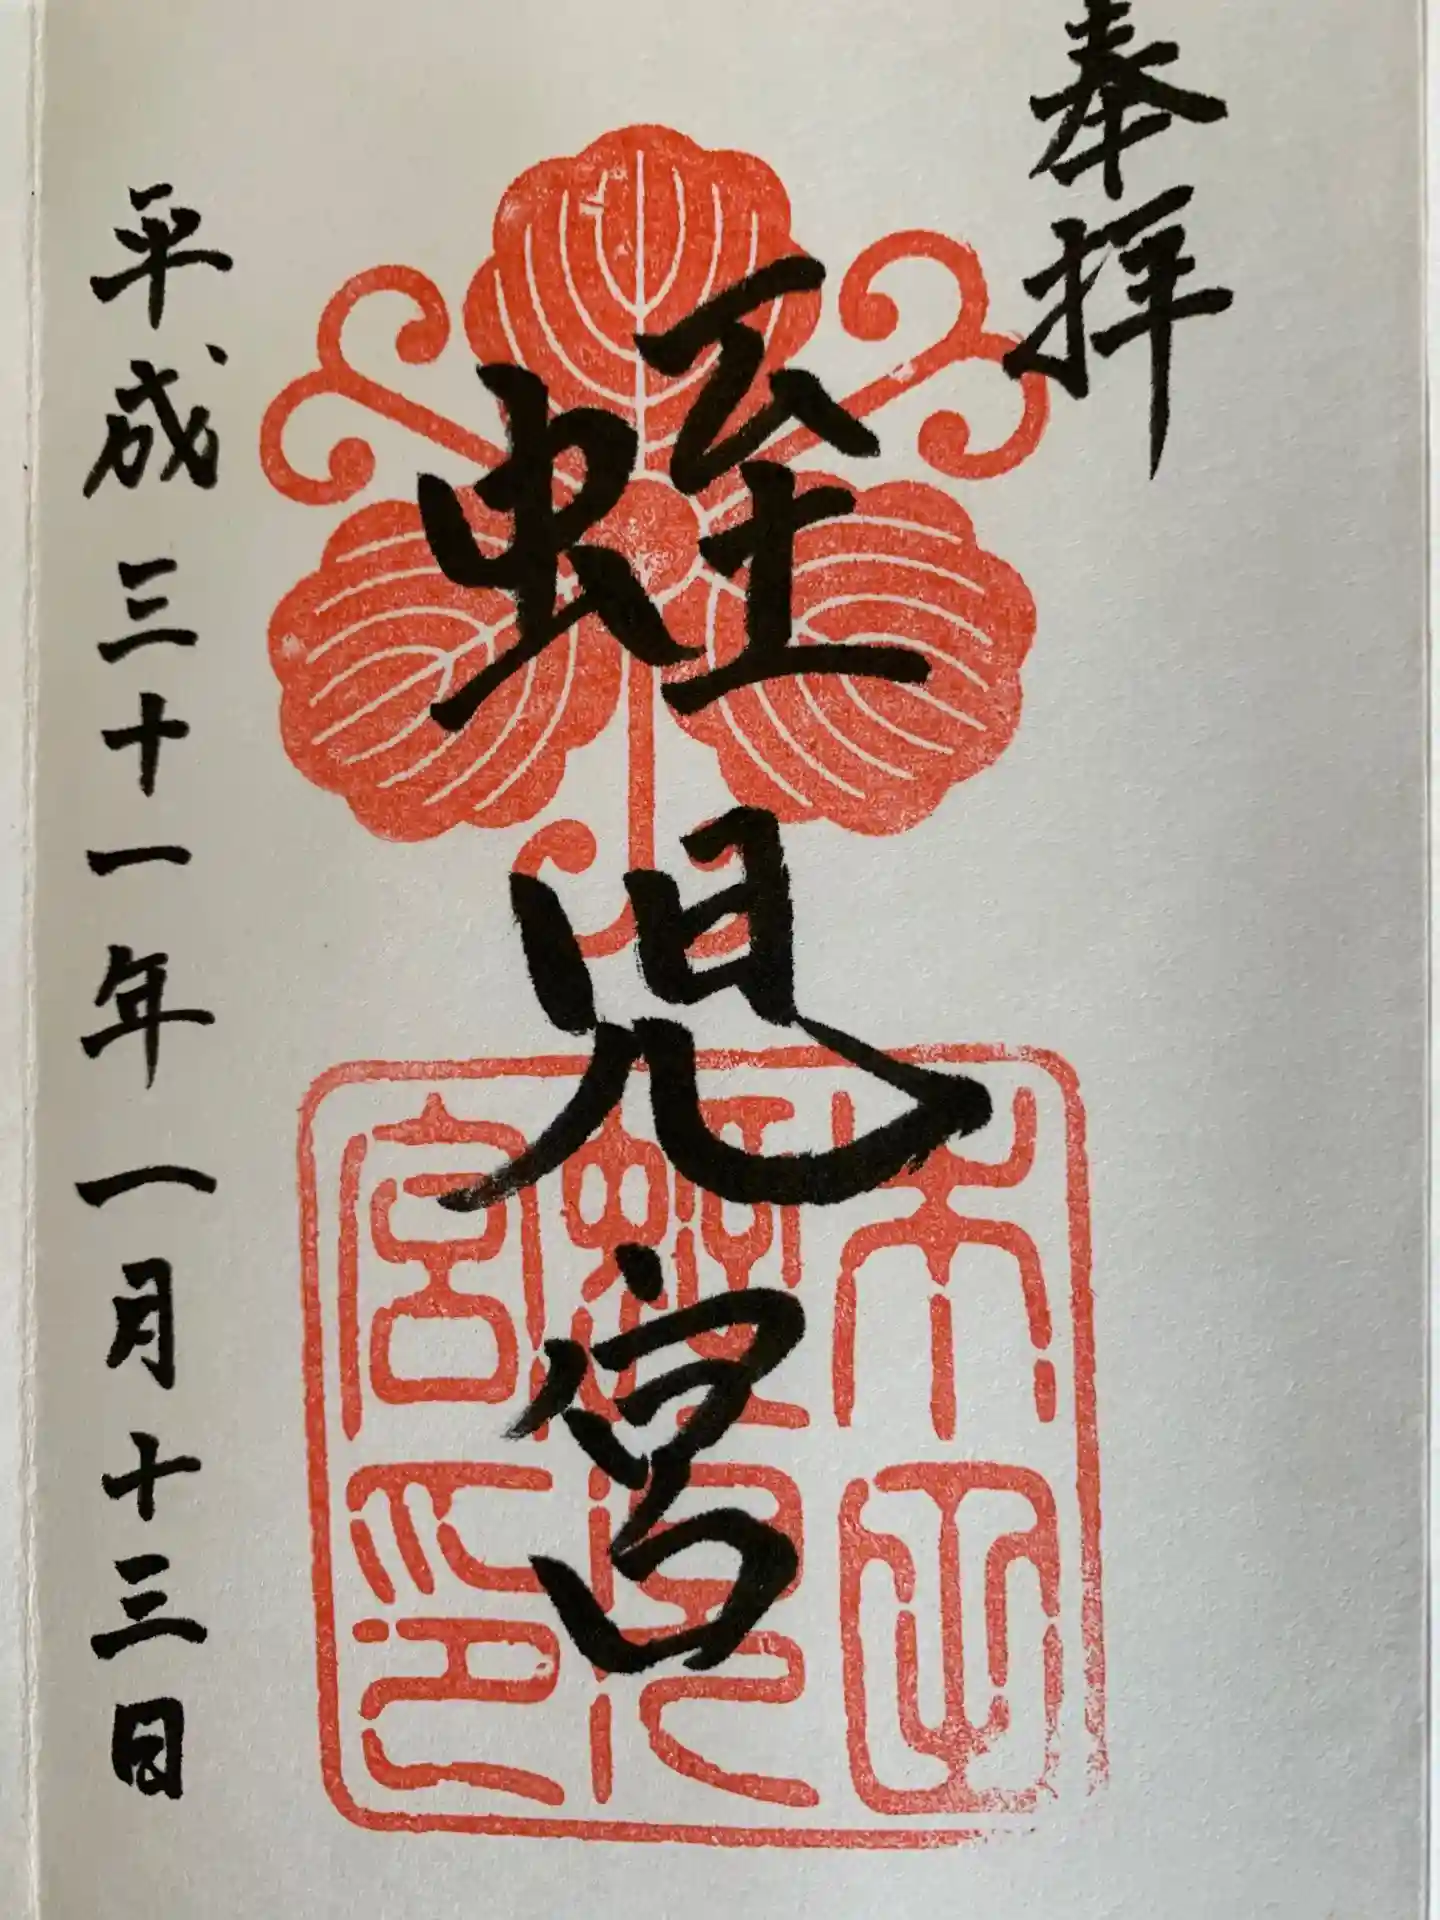 奉拝
蛭児宮
平成三十一年一月十三日
蛭児
宮印